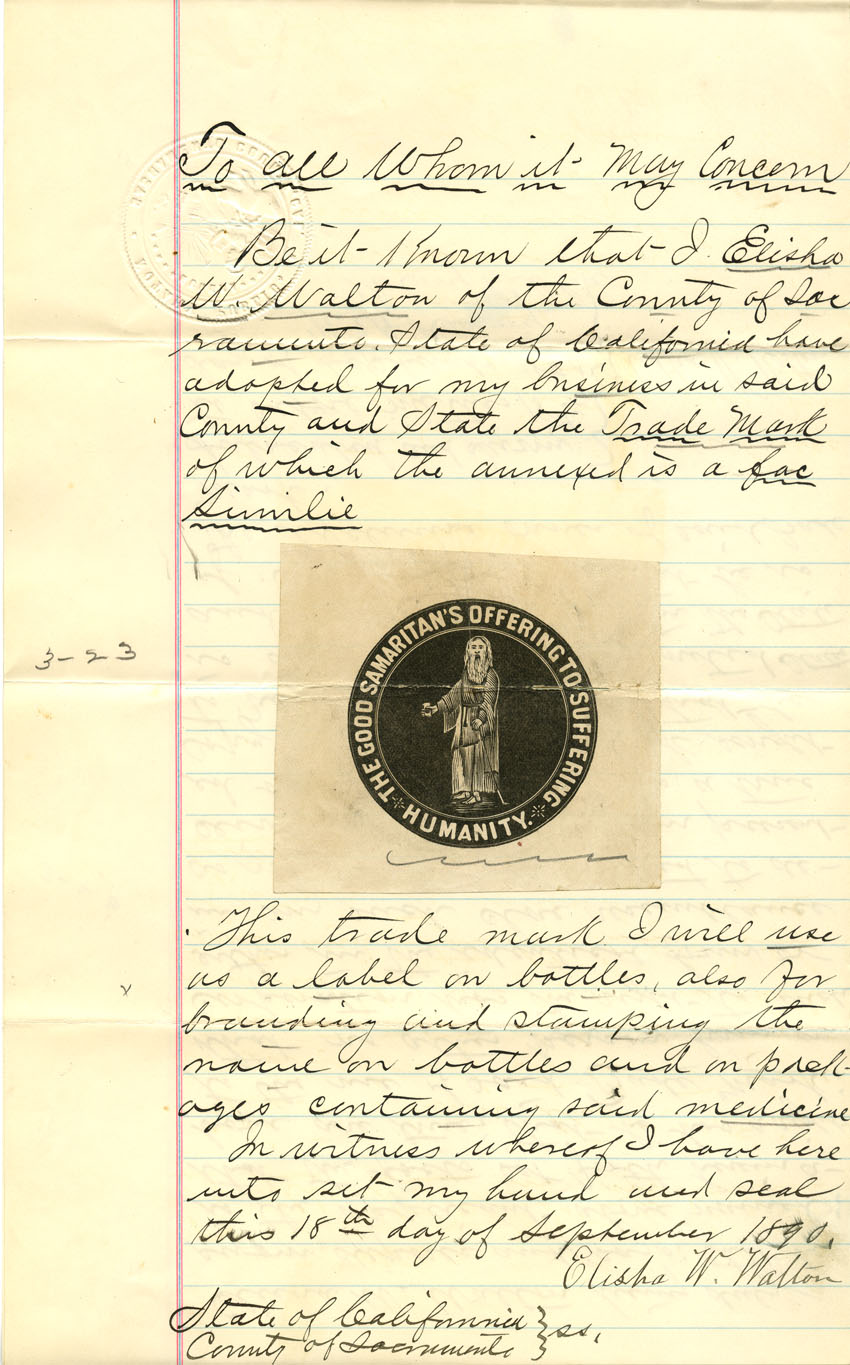 To all Whom it May Concern
Be it Known that I Elisha
W. Walton of the County of Sac
ramento, State of California have
adopted for my business in said
County and State the Trade Mark
of which the annexed is a fac
Similie
THE GOOD SAMARITAN'S OFFERING TO SUFFERING
HUMANITY.
3-23
This trade mark I will use
as a label on bottles, also for
branding and stamping the
name on bottles and on pack-
ages containing said medicine
In witness whereof I have here
unto set my hand and seal
this 18th day of September 1890.
Elisha W. Walton
State of California } ss,
County of Sacramento